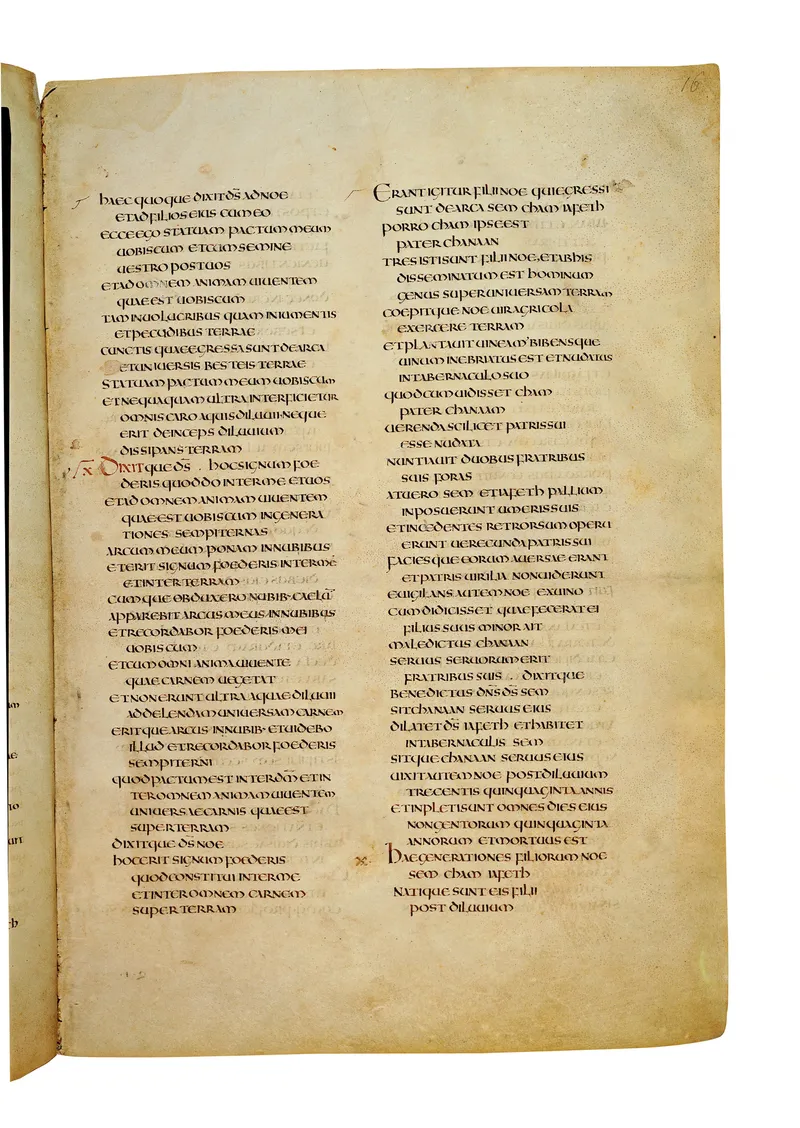 16
haec quoque dixit d̄s ad noe
et ad filios eius cum eo
ecce ego statuam pactum meum
uobiscum et cum semine
uestro post uos
et ad omnem animam uiuentem
quae est uobiscum
tam in uolucribus quam in iumentis
et pecudibus terrae
cunctis quae egressa sunt de arca
et uniuersis besteis terrae
statuam pactum meum uobiscum
et nequaquam ultra interficietur
omnis caro aquis diluuii neque
erit deinceps diluuium
dissipans terram
x Dixitque d̄s . hoc signum foe
deris quod do inter me et uos
et ad omnem animam uiuentem
quae est uobiscum in genera
tiones sempiternas
arcum meum ponam in nubibus
et erit signum foederis inter me
et inter terram
cumque obduxero nubib· caelū
apparebit arcus meus in nubibus
et recordabor foederis mei
uobiscum
et cum omni anima uiuente
quae carnem uegetat
et non erunt ultra aquae diluuii
ad delendam uniuersam carnem
eritque arcus in nubib· et uidebo
illud et recordabor foederis
sempiterni
quod pactum est inter d̄m et in
ter omnem animam uiuentem
uniuersae carnis quae est
super terram
dixitque d̄s noe
hoc erit signum foederis
quod constitui inter me
et inter omnem carnem
super terram
Erant igitur filii noe qui egressi
sunt de arca sem cham iafeth
porro cham ipse est
pater chanaan
tres isti sunt filii noe· et ab his
disseminatum est hominum
genus super uniuersam terram
coepitque noe uir agricola
exercere terram
et plantauit uineam· bibensque
uinum inebriatus est et nudatus
in tabernaculo suo
quod cum uidisset cham
pater chanaam
uerenda scilicet patris sui
esse nudata
nuntiauit duobus fratribus
suis foras
at uero sem et iafeth pallium
inposuerunt umeris suis
et incedentes retrorsum operu
erunt uerecunda patris sui
facies que eorum auersae erant
et patris uirilia non uiderunt
euigilans autem noe ex uino
cum didicisset quae fecerat ei
filius suus minor ait
maledictus chanaan
seruus seruorum erit
fratribus suis . dixitque
benedictus dn̄s d̄s sem
sit chanaan seruus eius
dilatet d̄s iafeth et habitet
in tabernaculis sem
sitque chanaan seruus eius
uixit autem noe post diluuium
trecentis quinquaginta annis
et inpleti sunt omnes dies eius
nongentorum quinquaginta
annorum et mortuus est
x· Hae generationes filiorum noe
sem cham iafeth
natique sunt eis filii
post diluuium